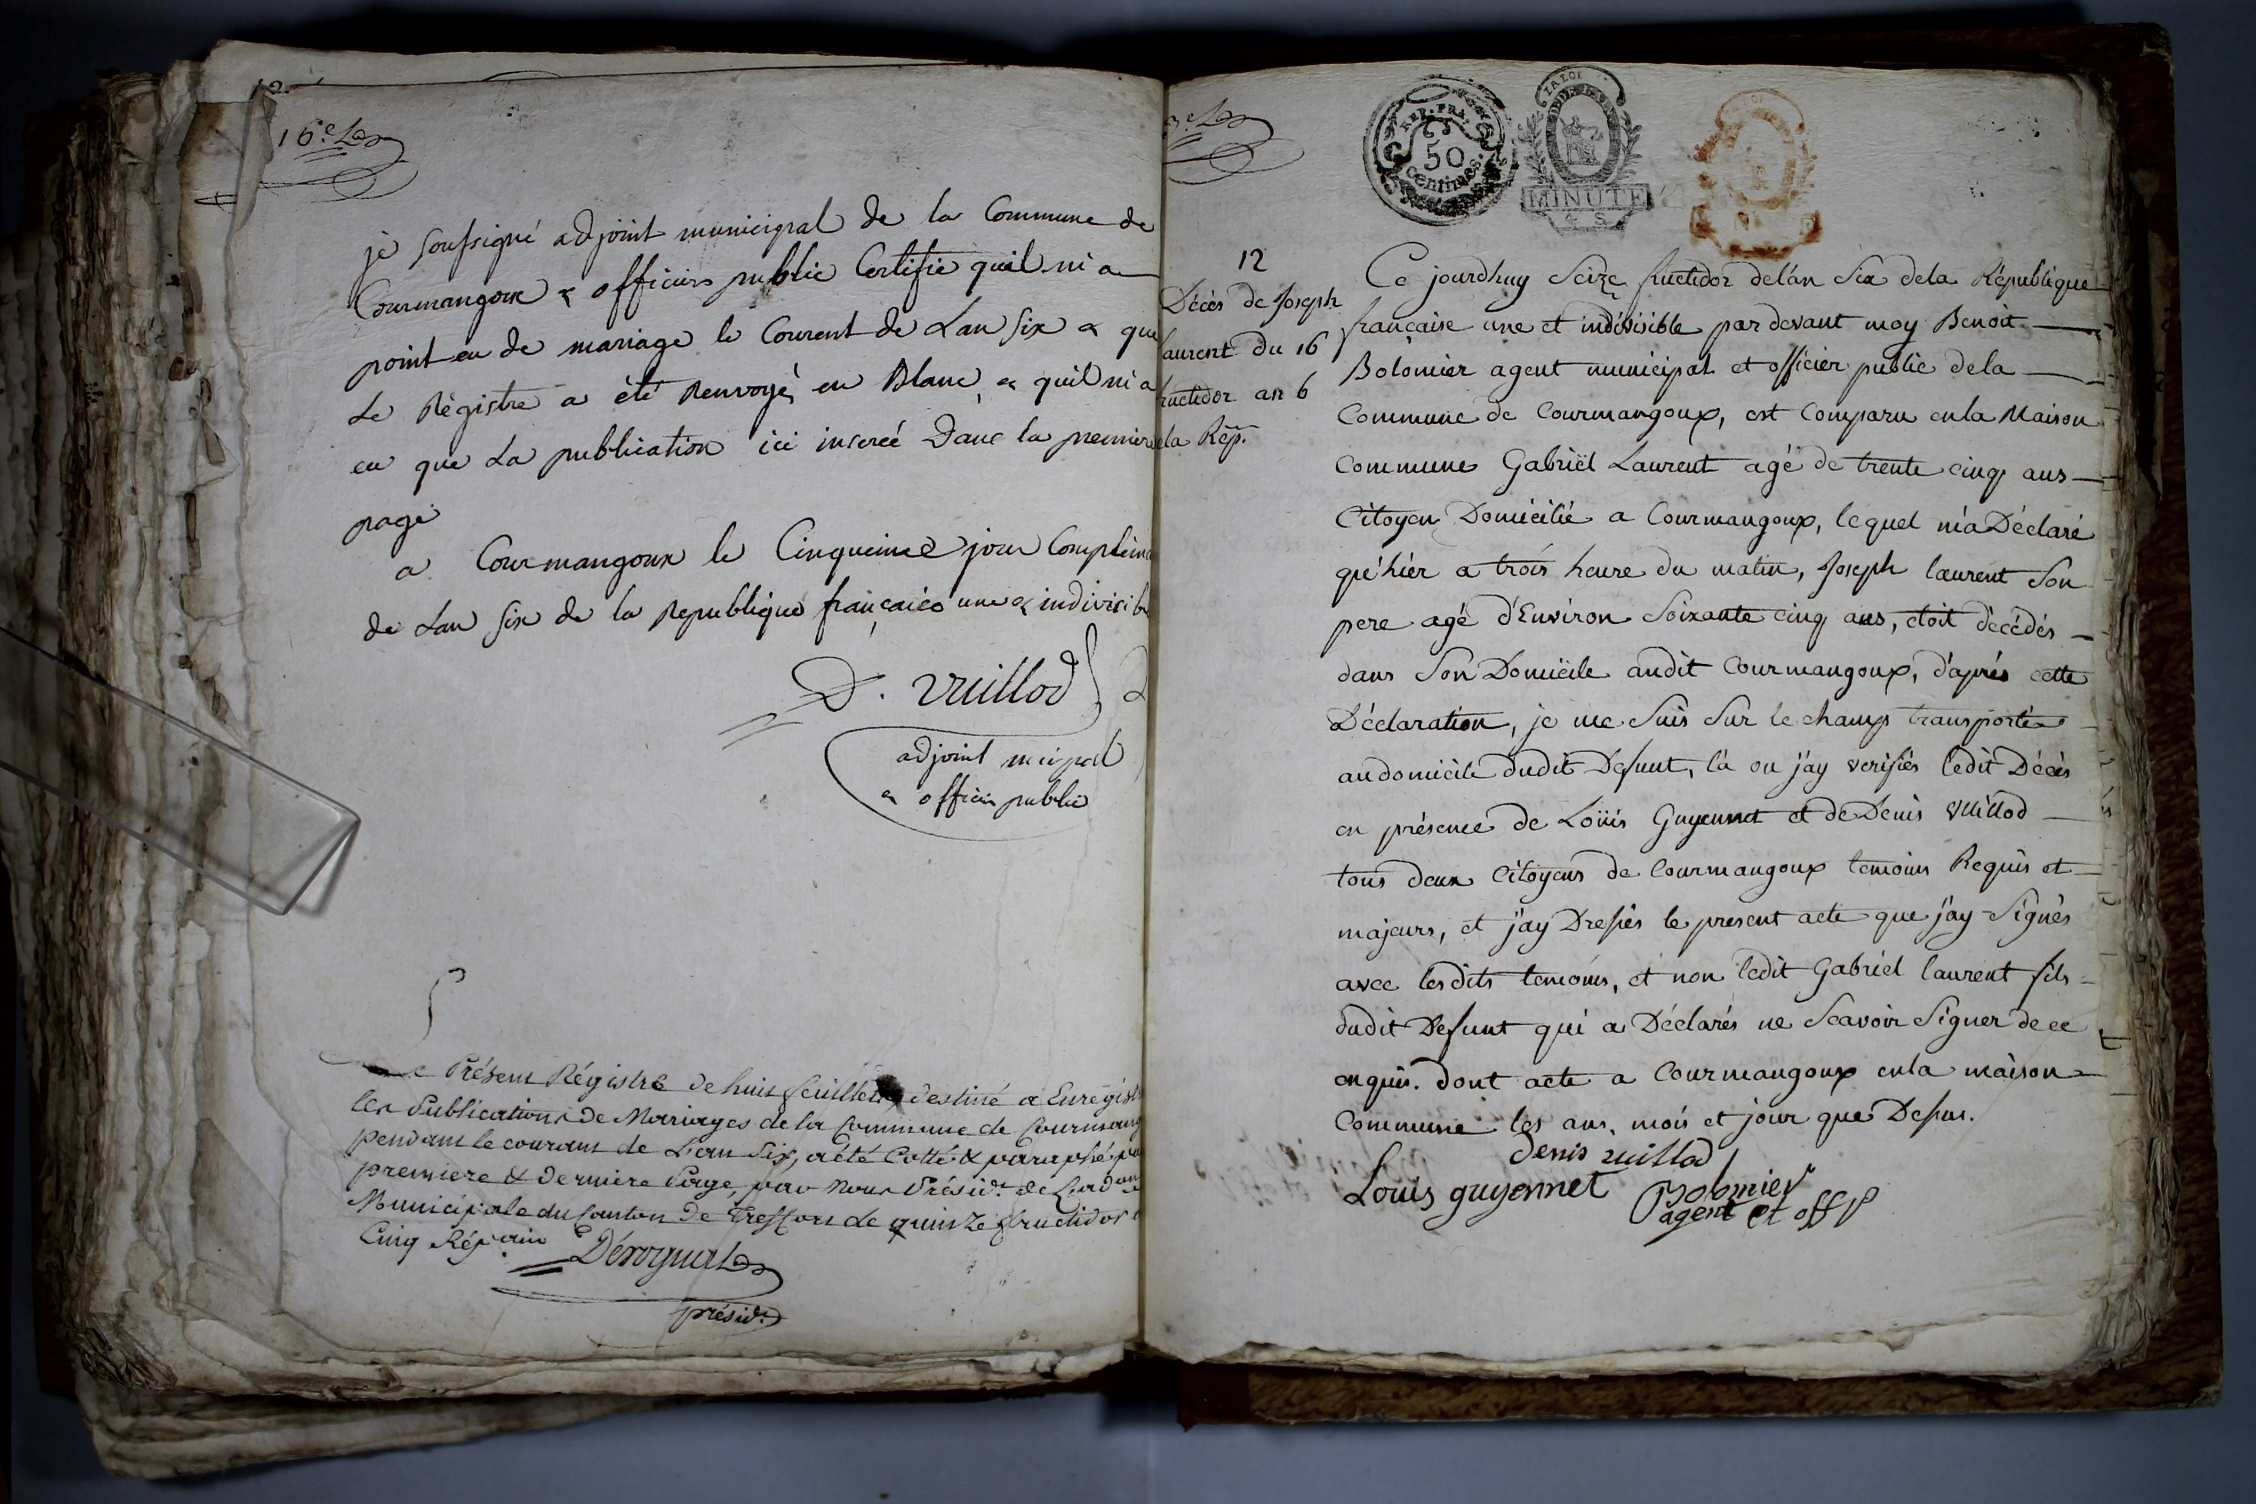 12
16e
je soussigné adjoint municipal de la Commune de
Courmangoux & officier public Certifie quil ni a
point eu de mariage le Courent de Lan six & que
Le Règistre a été Renvoyé en Blanc, & quil ni a
eu que La publication ici inserée Dans la premiere
page
a Courmangoux le Cinqueime jour Complem
de Lan six de la Republique française une & indivisib
D. Vuillod
adjoint mcipal
& officier public
Le Présent Régistre de huit feuillets destiné a Enregist
les Publications de Mariages de la Commune de Courmang
pendant le courant de L'an Six, a été Cotté & paraphé par
premiere & derniere Page, par Nous Présidt. de L'ad.on
Municipale du Canton de Treffort Le quinze fructidor
Cinq Rép.
présidt.
REP. FRA.
50
Centimes.
LA LOI
MINUTE
& S
12
Décès de Joseph
laurent du 16
fructidor an 6
de la Rép.
Ce jourdhuy Seize fructidor de l'an Six de la République
française une et indivisible par devant moy Benoit
Bolomier agent municipal et officier public de la
Commune de Courmangoux, est Comparu en la Maison
Commune Gabriël Laurent agé de trente cinq ans
Citoyen Domicilié a Courmangoux, lequel m'a Déclaré
qu'hièr a trois heure du matin, Joseph laurent Son
pere agé d'Environ Soixante cinq ans, etoit décédés
dans Son Domicile audit Courmangoux, d'après cette
Déclaration, je me Suis Sur le champs transportés
au domicile dudit Defunt, là ou j'ay verifiés ledit Décès
en présence de Loüis Guyennet et de Denis Vuillod
tous deux Citoyens de Courmangoux temoins Requis et
majeurs, et j'ay Dressés le present acte que j'ay Signés
avec lesdits temoins, et non ledit Gabriel laurent fils
dudit Defunt qui a Déclarés ne Scavoir Signer de ce
enquis. dont acte a Courmangoux en la maison
Commune les an, mois et jour que Dessus.
denis vuillod
Louis guyennet
Bolomier
agent et off p